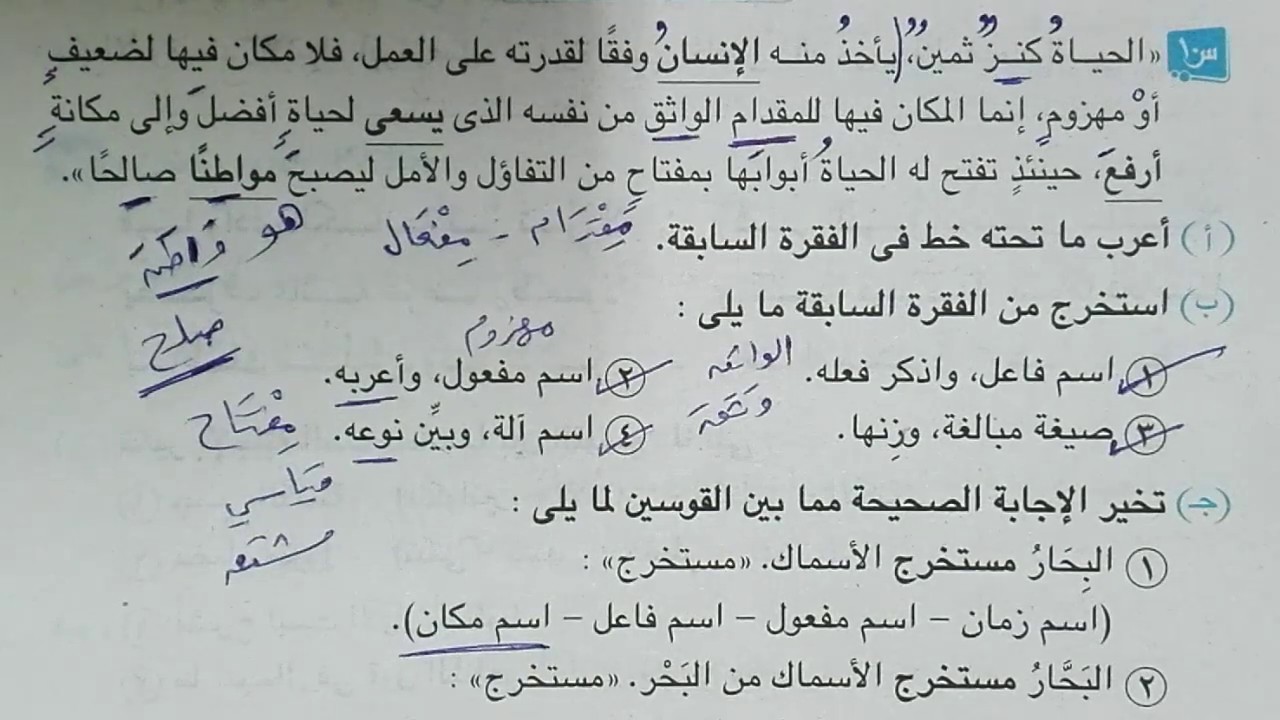 س١٠ «الحياةُ كنزٌ ثمينٌ، يأخذُ منه الإنسانُ وفقًا لقدرته على العمل، فلا مكان فيها لضعيفٍ
أوْ مهزومٍ، إنما المكان فيها للمقدام الواثق من نفسه الذى يسعى لحياةٍ أفضلَ وإلى مكانةٍ
أرفعَ، حينئذٍ تفتح له الحياةُ أبوابَها بمفتاحٍ من التفاؤل والأمل ليصبحَ مواطنًا صالحًا».
(أ) أعرب ما تحته خط فى الفقرة السابقة. مِقْدَام - مِفْعَال هو وَاطَنَ
(ب) استخرج من الفقرة السابقة ما يلى :
مهزوم صلح
١ اسم فاعل، واذكر فعله. الواثق ٢ اسم مفعول، وأعربه.
وَثَقَ
٣ صيغة مبالغة، وزِنها. ٤ اسم آلة، وبيِّن نوعه. مِفْتَاح
قِيَاسي
(جـ) تخير الإجابة الصحيحة مما بين القوسين لما يلى :
مشتق
١ البِحَارُ مستخرج الأسماك. «مستخرج» :
(اسم زمان – اسم مفعول – اسم فاعل – اسم مكان).
٢ البَحَّارُ مستخرج الأسماك من البَحْر. «مستخرج» :